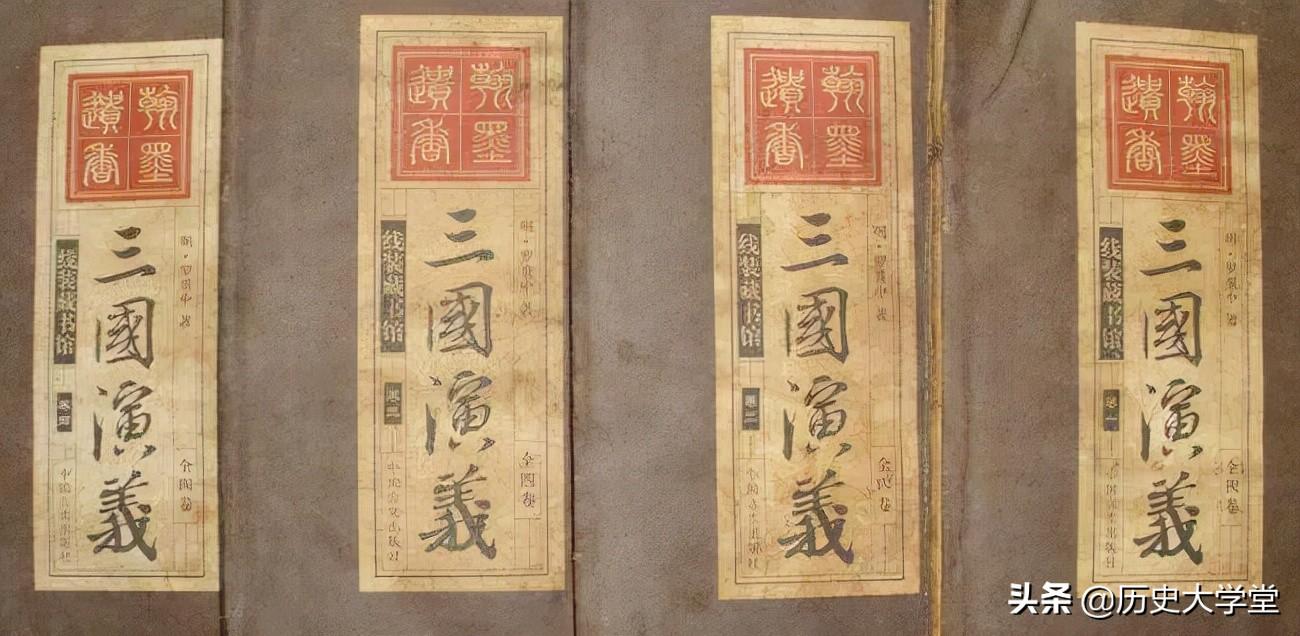 翰墨
遺香
明·罗贯中 著
三國演義
全四卷
线装藏书馆
卷四
翰墨
遺香
明·罗贯中 著
三國演義
全四卷
线装藏书馆
卷三
翰墨
遺香
明·罗贯中 著
三國演義
全四卷
线装藏书馆
卷二
翰墨
遺香
明·罗贯中 著
三國演義
全四卷
线装藏书馆
卷一
头条 @历史大学堂